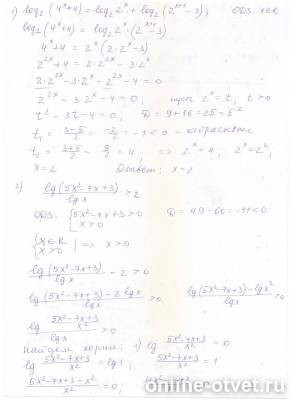 1) log₂(4ˣ+4) = log₂2ˣ + log₂(2ˣ⁺¹-3); ОДЗ: x∈R
log₂(4ˣ+4) = log₂ 2ˣ·(2ˣ⁺¹-3)
4ˣ+4 = 2ˣ(2·2ˣ-3)
2²ˣ+4 = 2·2²ˣ-3·2ˣ
2·2²ˣ-3·2ˣ-2²ˣ-4=0
2²ˣ-3·2ˣ-4=0; пусть 2ˣ=t, t>0
t²-3t-4=0; D=9+16=25=5²
t₁=(3-5)/2=-2/2=-1<0 -
t₂=(3+5)/2=8/2=4; => 2ˣ=4, 2ˣ=2²,
x=2 Ответ: x=2
2) lg(5x²-7x+3)/lgx >2
ОДЗ: {5x²-7x+3>0 D=49-60=-11<0
x>0
{x∈R
x>0 | => x>0
lg(5x²-7x+3)/lgx -2>0
lg(5x²-7x+3)-2lgx/lgx >0 lg(5x²-7x+3)-lgx²/lgx >0
lg (5x²-7x+3)/x² / lgx >0
найдем корни: 1) lg (5x²-7x+3)/x² =0
lg (5x²-7x+3)/x² = lg1; (5x²-7x+3)/x² =1
(5x²-7x+3-x²)/x² =0;
online-otvet.ru